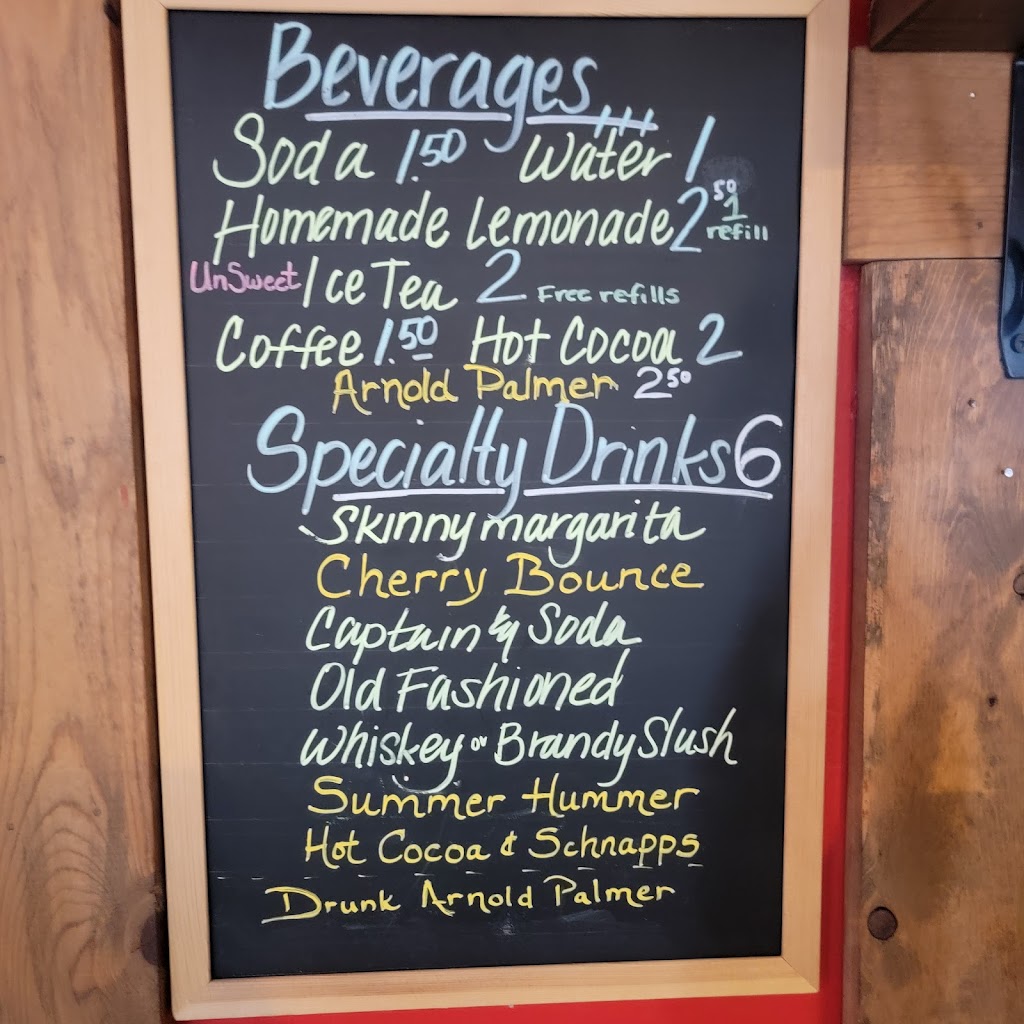 Beverages...
Soda 1.50 Water 1
Homemade Lemonade 2 50 1 refill
UnSweet Ice Tea 2 Free refills
Coffee 1.50 Hot Cocoa 2
Arnold Palmer 2 50
Specialty Drinks 6
Skinny margarita
Cherry Bounce
Captain & Soda
Old Fashioned
Whiskey or Brandy Slush
Summer Hummer
Hot Cocoa & Schnapps
Drunk Arnold Palmer